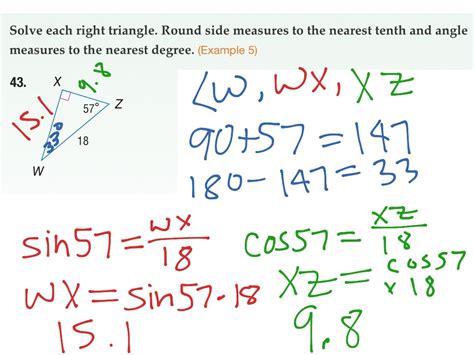 Solve each right triangle. Round side measures to the nearest tenth and angle
measures to the nearest degree. (Example 5)
43.
X
9.8
Z
57°
15.1
33°
18
W
∠W, WX, XZ
90+57=147
180-147=33
sin57=WX/18
WX=sin57·18
15.1
cos57=XZ/18
XZ=cos57
×18
9.8